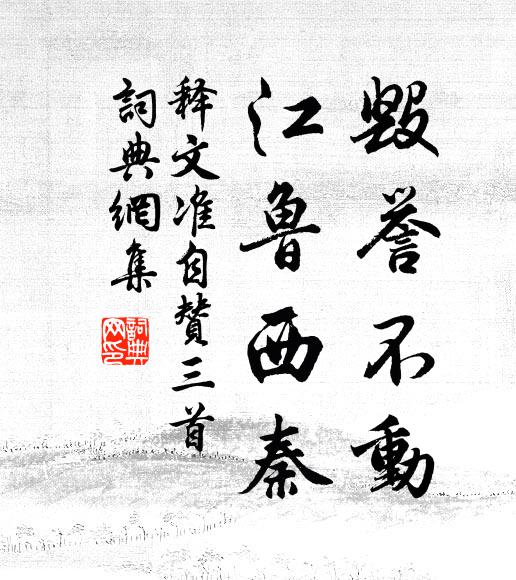 毀譽不動
江魯西秦
释文准自贊三首
詞典網集
詞典
网印